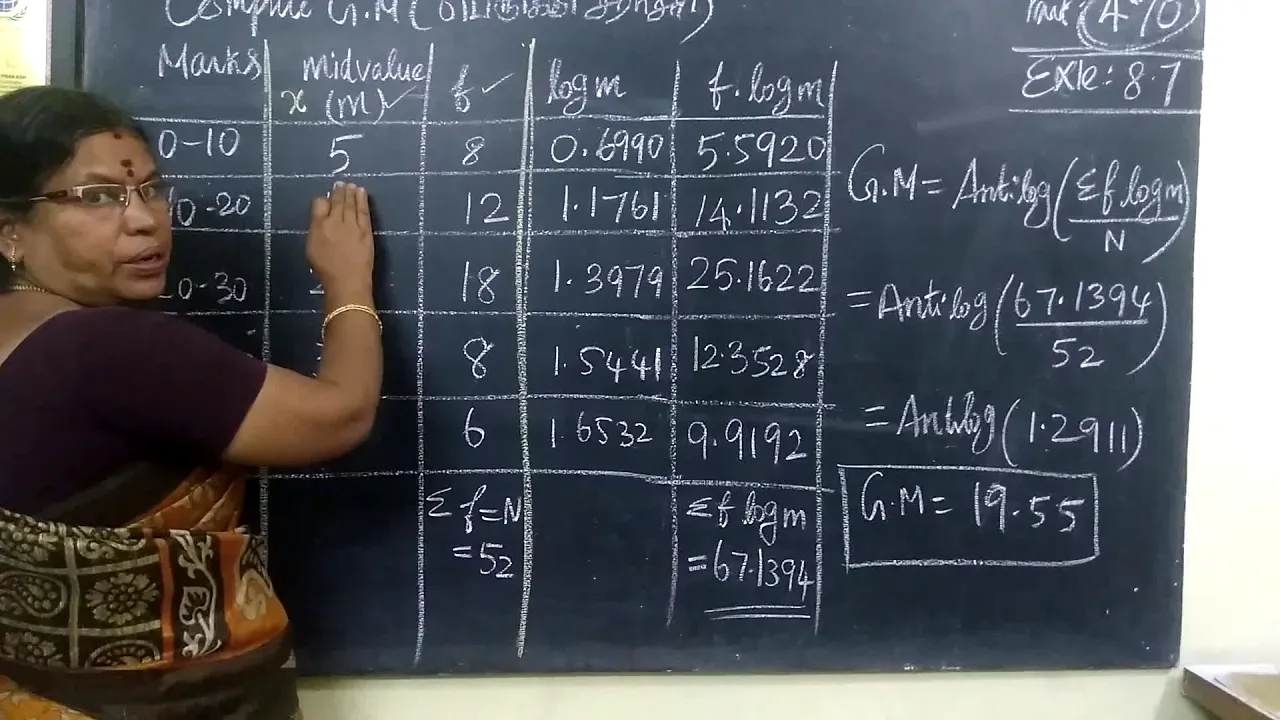 Compute G.M (பெருக்கு சராசரி)
Marks midvalue x (m) ✓ f ✓ log m f. log m
0-10 5 8 0.6990 5.5920
-20 12 1.1761 14.1132
0-30 18 1.3979 25.1622
8 1.5441 12.3528
6 1.6532 9.9192
Σ f = N Σ f log m
= 52 = 67.1394
Exle: 8.7
G.M = Antilog (Σf log m / N)
= Antilog (67.1394 / 52)
= Antilog (1.2911)
G.M = 19.55